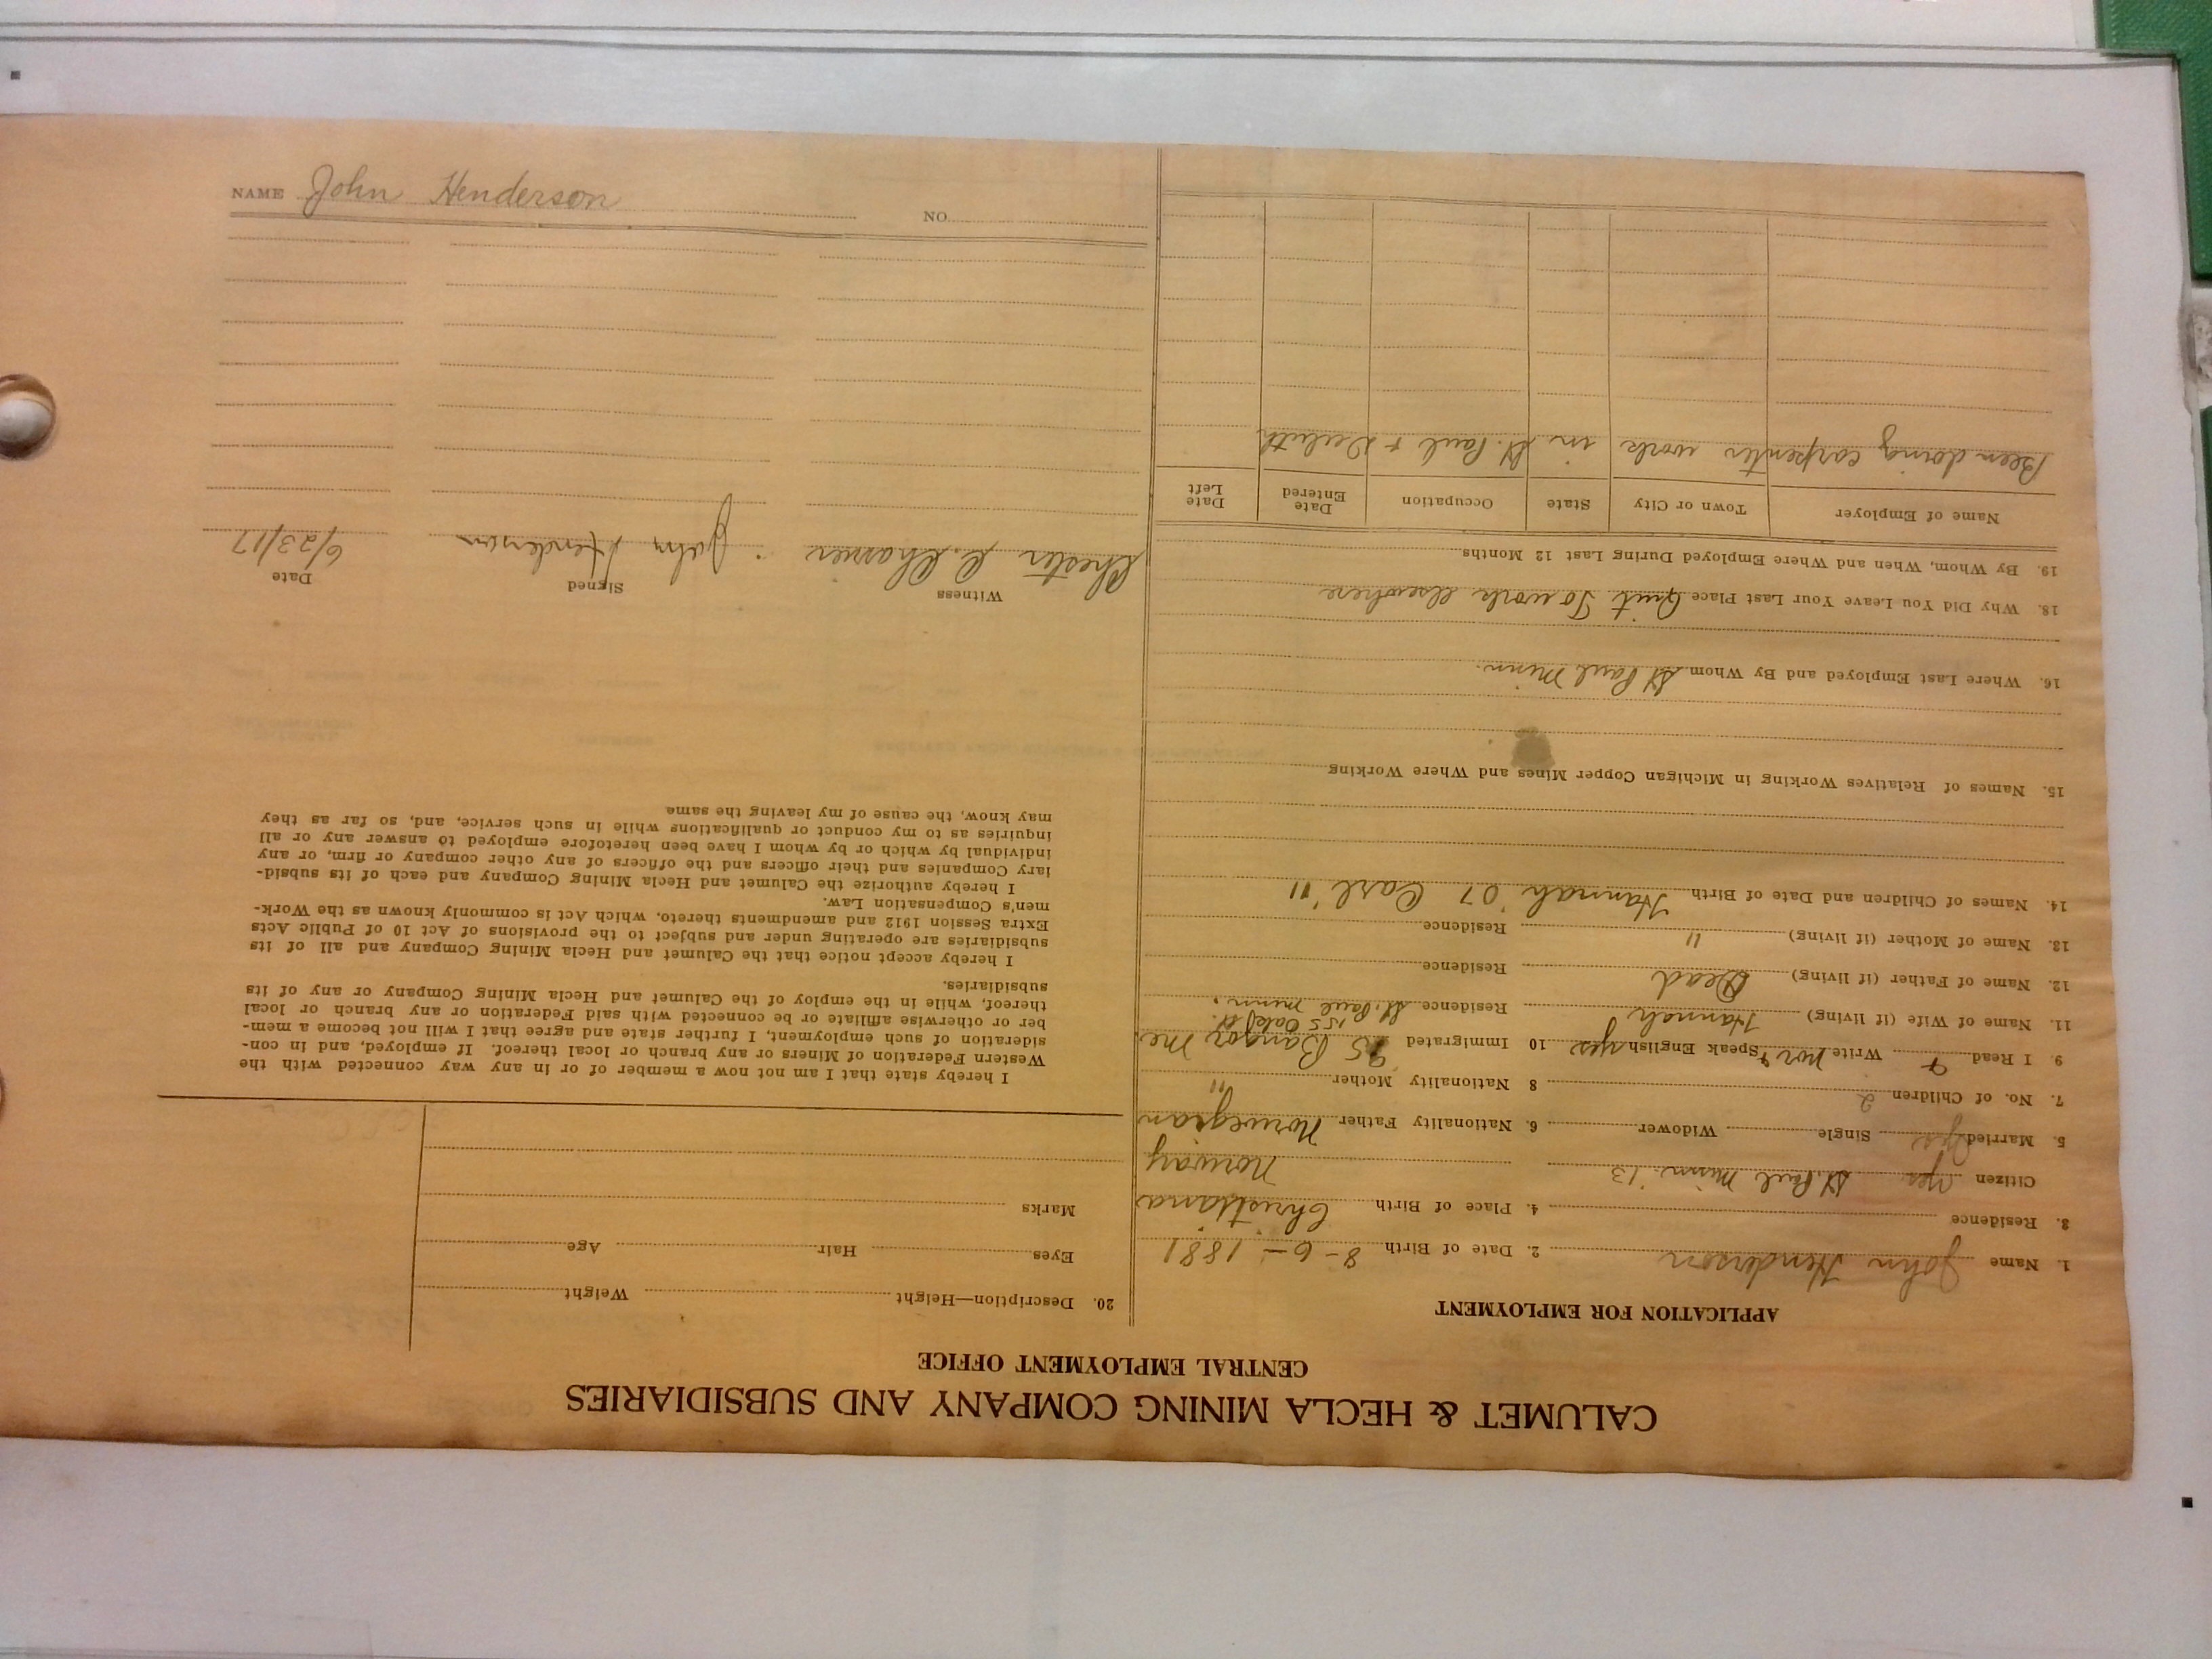 CALUMET & HECLA MINING COMPANY AND SUBSIDIARIES
CENTRAL EMPLOYMENT OFFICE
APPLICATION FOR EMPLOYMENT
1. Name John Henderson 2. Date of Birth 8-6-1881
3. Residence 4. Place of Birth Christiana
Citizen yes St. Paul Minn. '13 Norway
5. Married yes Single Widower 6. Nationality Father Norwegian
7. No. of Children 2 8 Nationality Mother "
9. I Read Write nor Speak English yes 10 Immigrated 95 Bangor Me
155 Oakf St.
11. Name of Wife (if living) Hannah Residence St. Paul Minn.
12. Name of Father (if living) Dead Residence
13. Name of Mother (if living) " Residence
14. Names of Children and Date of Birth Hannah '07 Carl '11
15. Names of Relatives Working in Michigan Copper Mines and Where Working
16. Where Last Employed and By Whom St Paul Minn.
18. Why Did You Leave Your Last Place Quit To work elsewhere
19. By Whom, When and Where Employed During Last 12 Months
Name of Employer Town or City State Occupation Date Entered Date Left
Been doing carpenter work in St. Paul & Duluth
20. Description—Height Weight
Eyes Hair Age
Marks
I hereby state that I am not now a member of or in any way connected with the
Western Federation of Miners or any branch or local thereof. If employed, and in con-
sideration of such employment, I further state and agree that I will not become a mem-
ber or otherwise affiliate or be connected with said Federation or any branch or local
thereof, while in the employ of the Calumet and Hecla Mining Company or any of its
subsidiaries.
I hereby accept notice that the Calumet and Hecla Mining Company and all of its
subsidiaries are operating under and subject to the provisions of Act 10 of Public Acts
Extra Session 1912 and amendments thereto, which Act is commonly known as the Work-
men's Compensation Law.
I hereby authorize the Calumet and Hecla Mining Company and each of its subsid-
iary Companies and their officers and the officers of any other company or firm, or any
individual by which or by whom I have been heretofore employed to answer any or all
inquiries as to my conduct or qualifications while in such service, and, so far as they
may know, the cause of my leaving the same
Witness Signed Date
Chester C. John Henderson 6/23/17
NAME John Henderson NO.